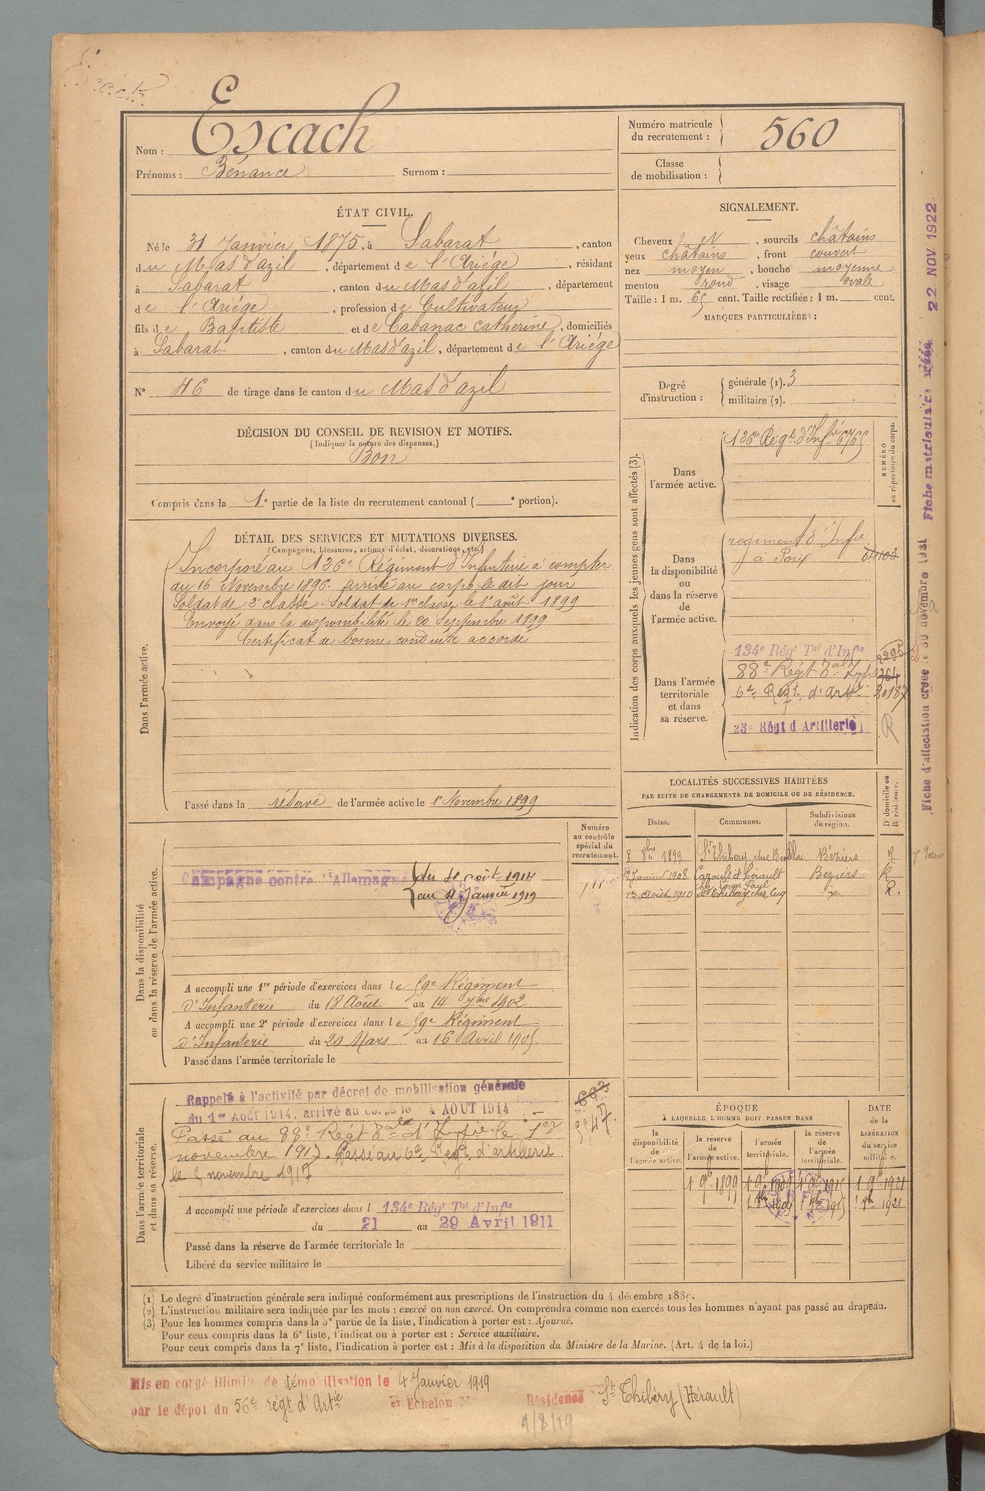 Nom : Escach
Prénoms : Bénance Surnom :
Numéro matricule du recrutement : 560
Classe de mobilisation :
ÉTAT CIVIL.
Né le 31 Janvier 1875, à Sabarat, canton
du Mas d'azil, département de l'Ariége, résidant
à Sabarat, canton du Mas d'azil, département
de l'Ariége, profession de Cultivateur
fils de Baptiste et de Cabanac Catherine, domiciliés
à Sabarat, canton du Mas d'azil, département de l'Ariége
N° 46 de tirage dans le canton du Mas d'azil
SIGNALEMENT.
Cheveux, sourcils châtains
yeux châtains, front couvert
nez moyen, bouche moyenne
menton rond, visage ovale
Taille : 1 m. 65 cent. Taille rectifiée : 1 m. cent.
MARQUES PARTICULIÈRES :
Degré d'instruction : générale (1). 3
militaire (2).
DÉCISION DU CONSEIL DE REVISION ET MOTIFS.
(Indiquer la nature des dispenses.)
Bon
Compris dans la 1e partie de la liste du recrutement cantonal ( e portion).
DÉTAIL DES SERVICES ET MUTATIONS DIVERSES.
(Campagnes, blessures, actions d'éclat, décorations, etc.)
Dans l'armée active.
Incorporé au 126e Régiment d'Infanterie à compter
du 16 Novembre 1896. arrivé au corps le dit jour
Soldat de 2e classe. Soldat de 1re classe le 1er août 1899
Envoyé dans la disponibilité le 20 Septembre 1899
Certificat de bonne conduite accordé
Passé dans la réserve de l'armée active le 1er Novembre 1899
Indication des corps auxquels les jeunes gens sont affectés (3).
NUMÉRO au répertoire du corps.
Dans l'armée active.
126e Régt. d'Infie
Dans la disponibilité ou dans la réserve de l'armée active.
régiment d'Infie
à Foix
Dans l'armée territoriale et dans sa réserve.
134e Régt Tal d'Infie
88e Régt Tal
6e Régt. d'Artie
23e Régt d'Artillerie
LOCALITÉS SUCCESSIVES HABITÉES
PAR SUITE DE CHANGEMENTS DE DOMICILE OU DE RÉSIDENCE.
Dates. Communes. Subdivisions de région. D domicile ou R résidence.
8 8bre 1899 St Thibéry Béziers R
Janvier 1908 Cazouls d'Hérault Béziers R
Août 1910 St Thibéry chez Cuq R.
Dans la disponibilité ou dans la réserve de l'armée active.
Numéro au contrôle spécial du recrutement.
Campagne contre l'Allemagne
du 4 août 1914
au 4 Janvier 1919
A accompli une 1re période d'exercices dans le 59e Régiment
d'Infanterie du 18 Août au 14 7bre 1902
A accompli une 2e période d'exercices dans le 59e Régiment
d'Infanterie du 20 Mars au 16 Avril 1905
Passé dans l'armée territoriale le
Dans l'armée territoriale et dans sa réserve.
Rappelé à l'activité par décret de mobilisation générale
du 1er Août 1914, arrivé au corps le 4 AOUT 1914
Passé au 88e Régt Tal d'Infie le 1er
novembre 1917. Passé au 6e Régt. d'artillerie
le 5 novembre 1917
A accompli une période d'exercices dans l 134e Régt Tal d'Infie
du 21 au 29 Avril 1911
Passé dans la réserve de l'armée territoriale le
Libéré du service militaire le
ÉPOQUE À LAQUELLE L'HOMME DOIT PASSER DANS
la disponibilité de l'armée active. la réserve de l'armée active. l'armée territoriale. la réserve de l'armée territoriale.
DATE de la LIBÉRATION du service militaire.
1 9bre 1899 1 9bre 1921
(1) Le degré d'instruction générale sera indiqué conformément aux prescriptions de l'instruction du 4 décembre 1889.
(2) L'instruction militaire sera indiquée par les mots : exercé ou non exercé. On comprendra comme non exercés tous les hommes n'ayant pas passé au drapeau.
(3) Pour les hommes compris dans la 5e partie de la liste, l'indication à porter est : Ajourné.
Pour ceux compris dans la 6e liste, l'indication à porter est : Service auxiliaire.
Pour ceux compris dans la 7e liste, l'indication à porter est : Mis à la disposition du Ministre de la Marine. (Art. 4 de la loi.)
Mis en congé illimité de démobilisation le 4 Janvier 1919
par le dépôt du 56e régt d'Artie Echelon N° Résidence St Thibéry (Hérault)
4/8/19
Fiche d'affectation créée le 30 novembre 1921 Fiche matriculaire créée 22 NOV 1922